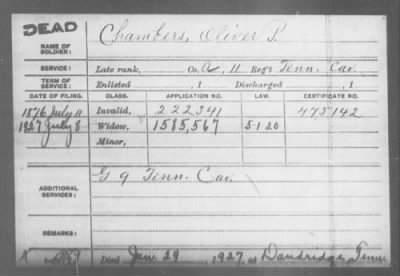 DEAD
NAME OF SOLDIER: Chambers, Oliver P.
SERVICE: Late rank, Co. A, 11 Reg't Tenn. Cav.
TERM OF SERVICE: Enlisted , 1 Discharged , 1
DATE OF FILING. CLASS. APPLICATION NO. LAW. CERTIFICATE NO.
1876 July 11 Invalid, 222341 475142
1927 July 8 Widow, 1585,567 5-1-20
Minor,
ADDITIONAL SERVICES: G 9 Tenn. Cav.
REMARKS:
Died Jan. 29, 1927, at Dandridge, Tenn